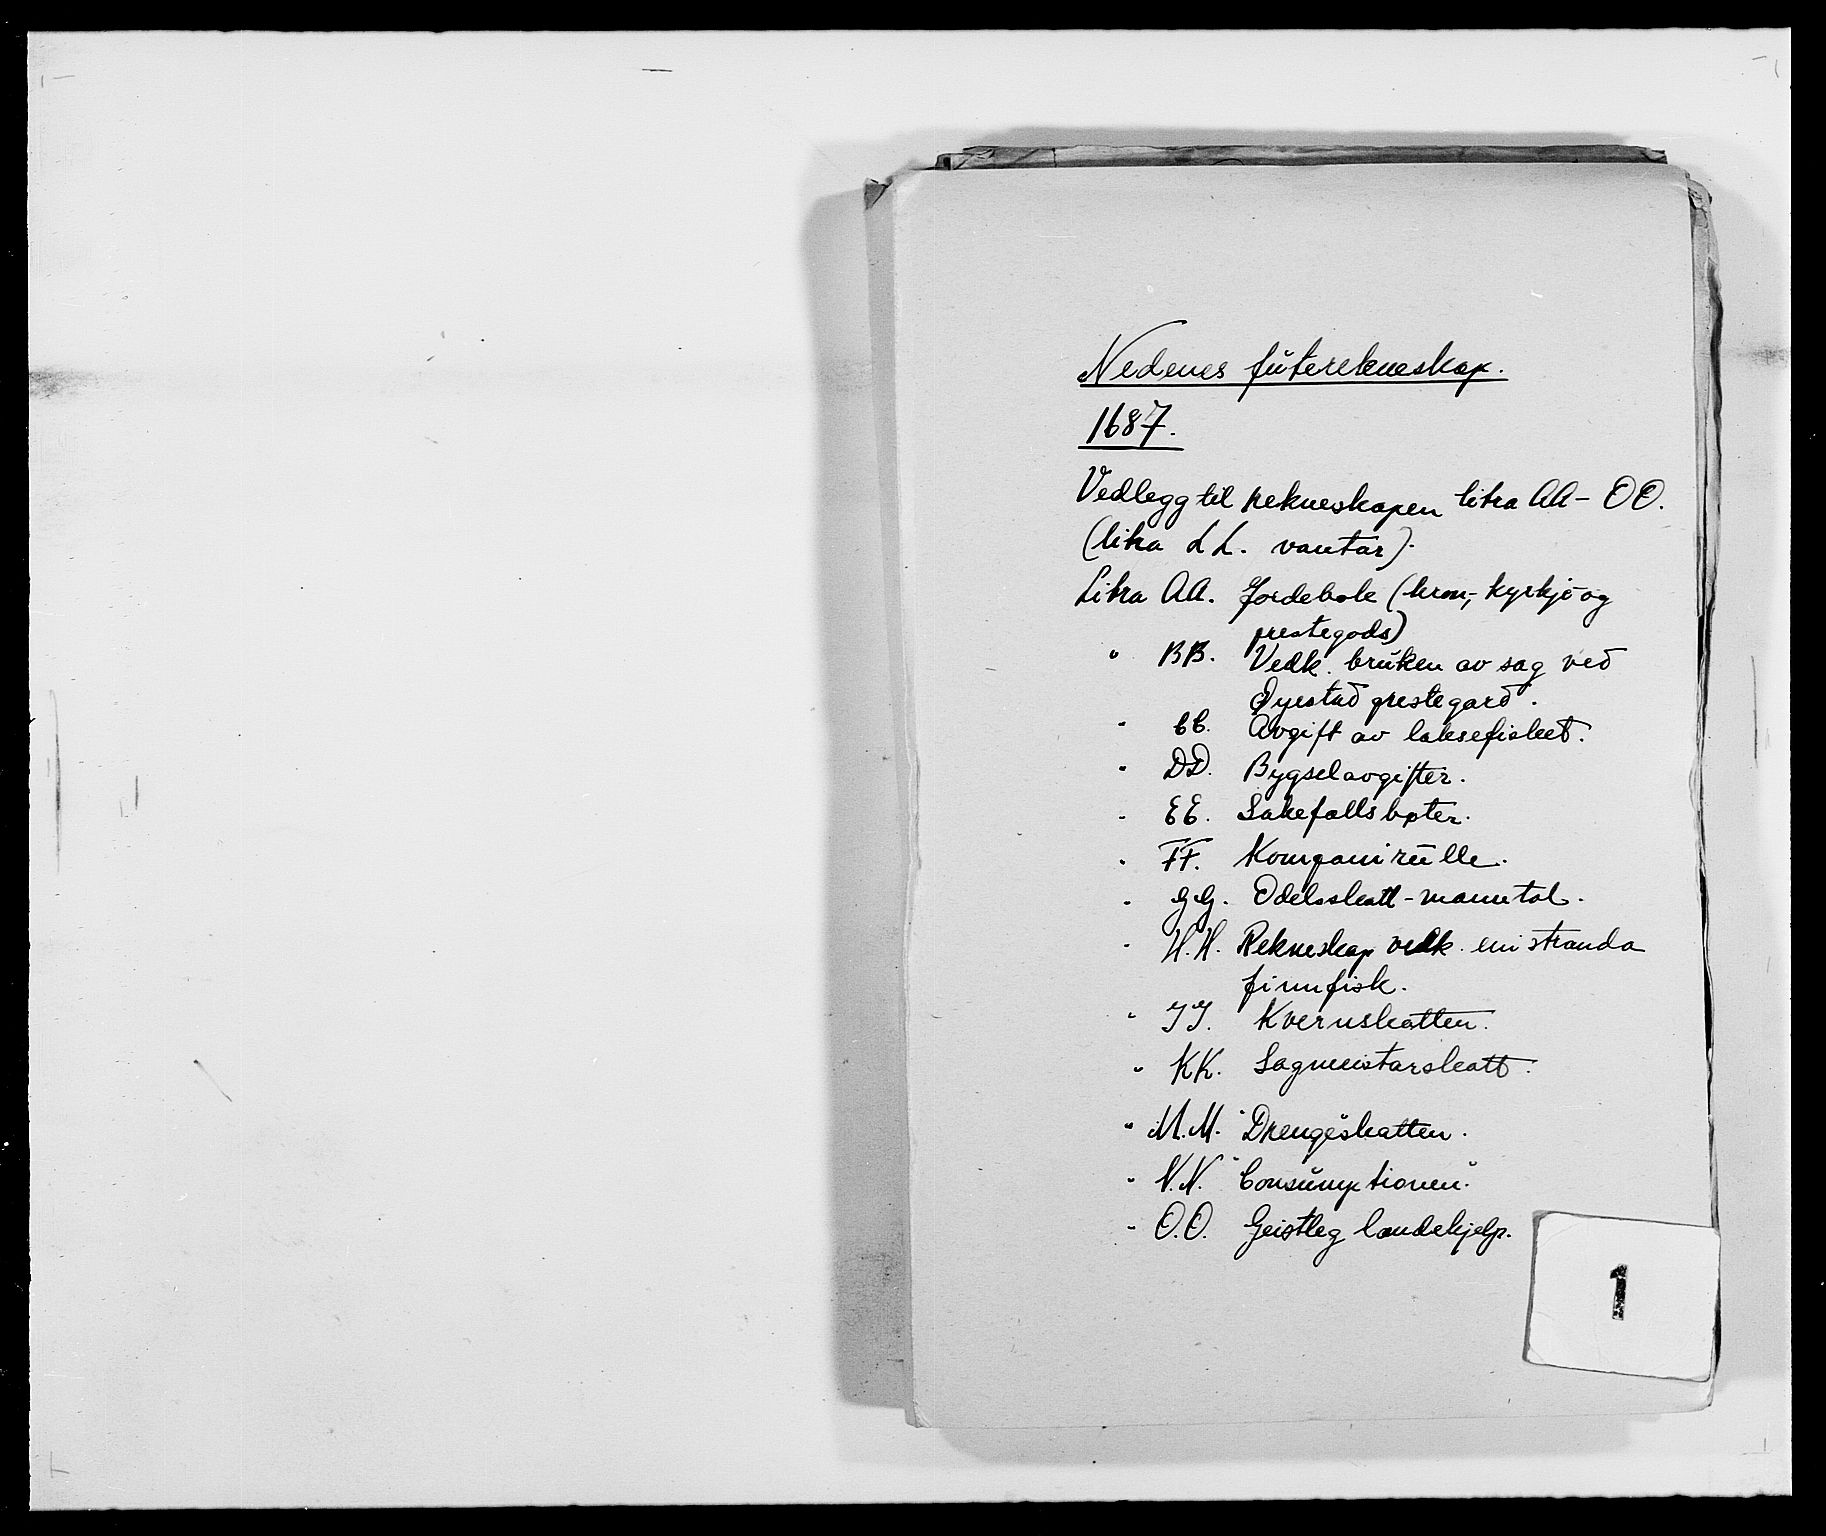 Nedenes futerekneskap.
1687.
Vedlegg til rekneskapen litra AA - OO.
(litra LL. vantar).
Litra AA. Jordebok (kron-, kyrkje og
prestegods)
" BB. Vedk. bruken av sag ved
Øyestad prestegard.
" CC. Avgift av laksefisket.
" DD. Bygselavgifter.
" EE. Sakefallsbøter.
" FF. Kompanirulle.
" GG. Odelsskatt-manntal.
" H.H. Rekneskap vedk. ein stranda
finnfisk.
" JJ. Kvernskatten.
" KK. Sagmeistarskatt.
" M.M. "Drengeskatten.
" N.N. "Consumptionen".
" O.O. Geistleg landehjelp.
1